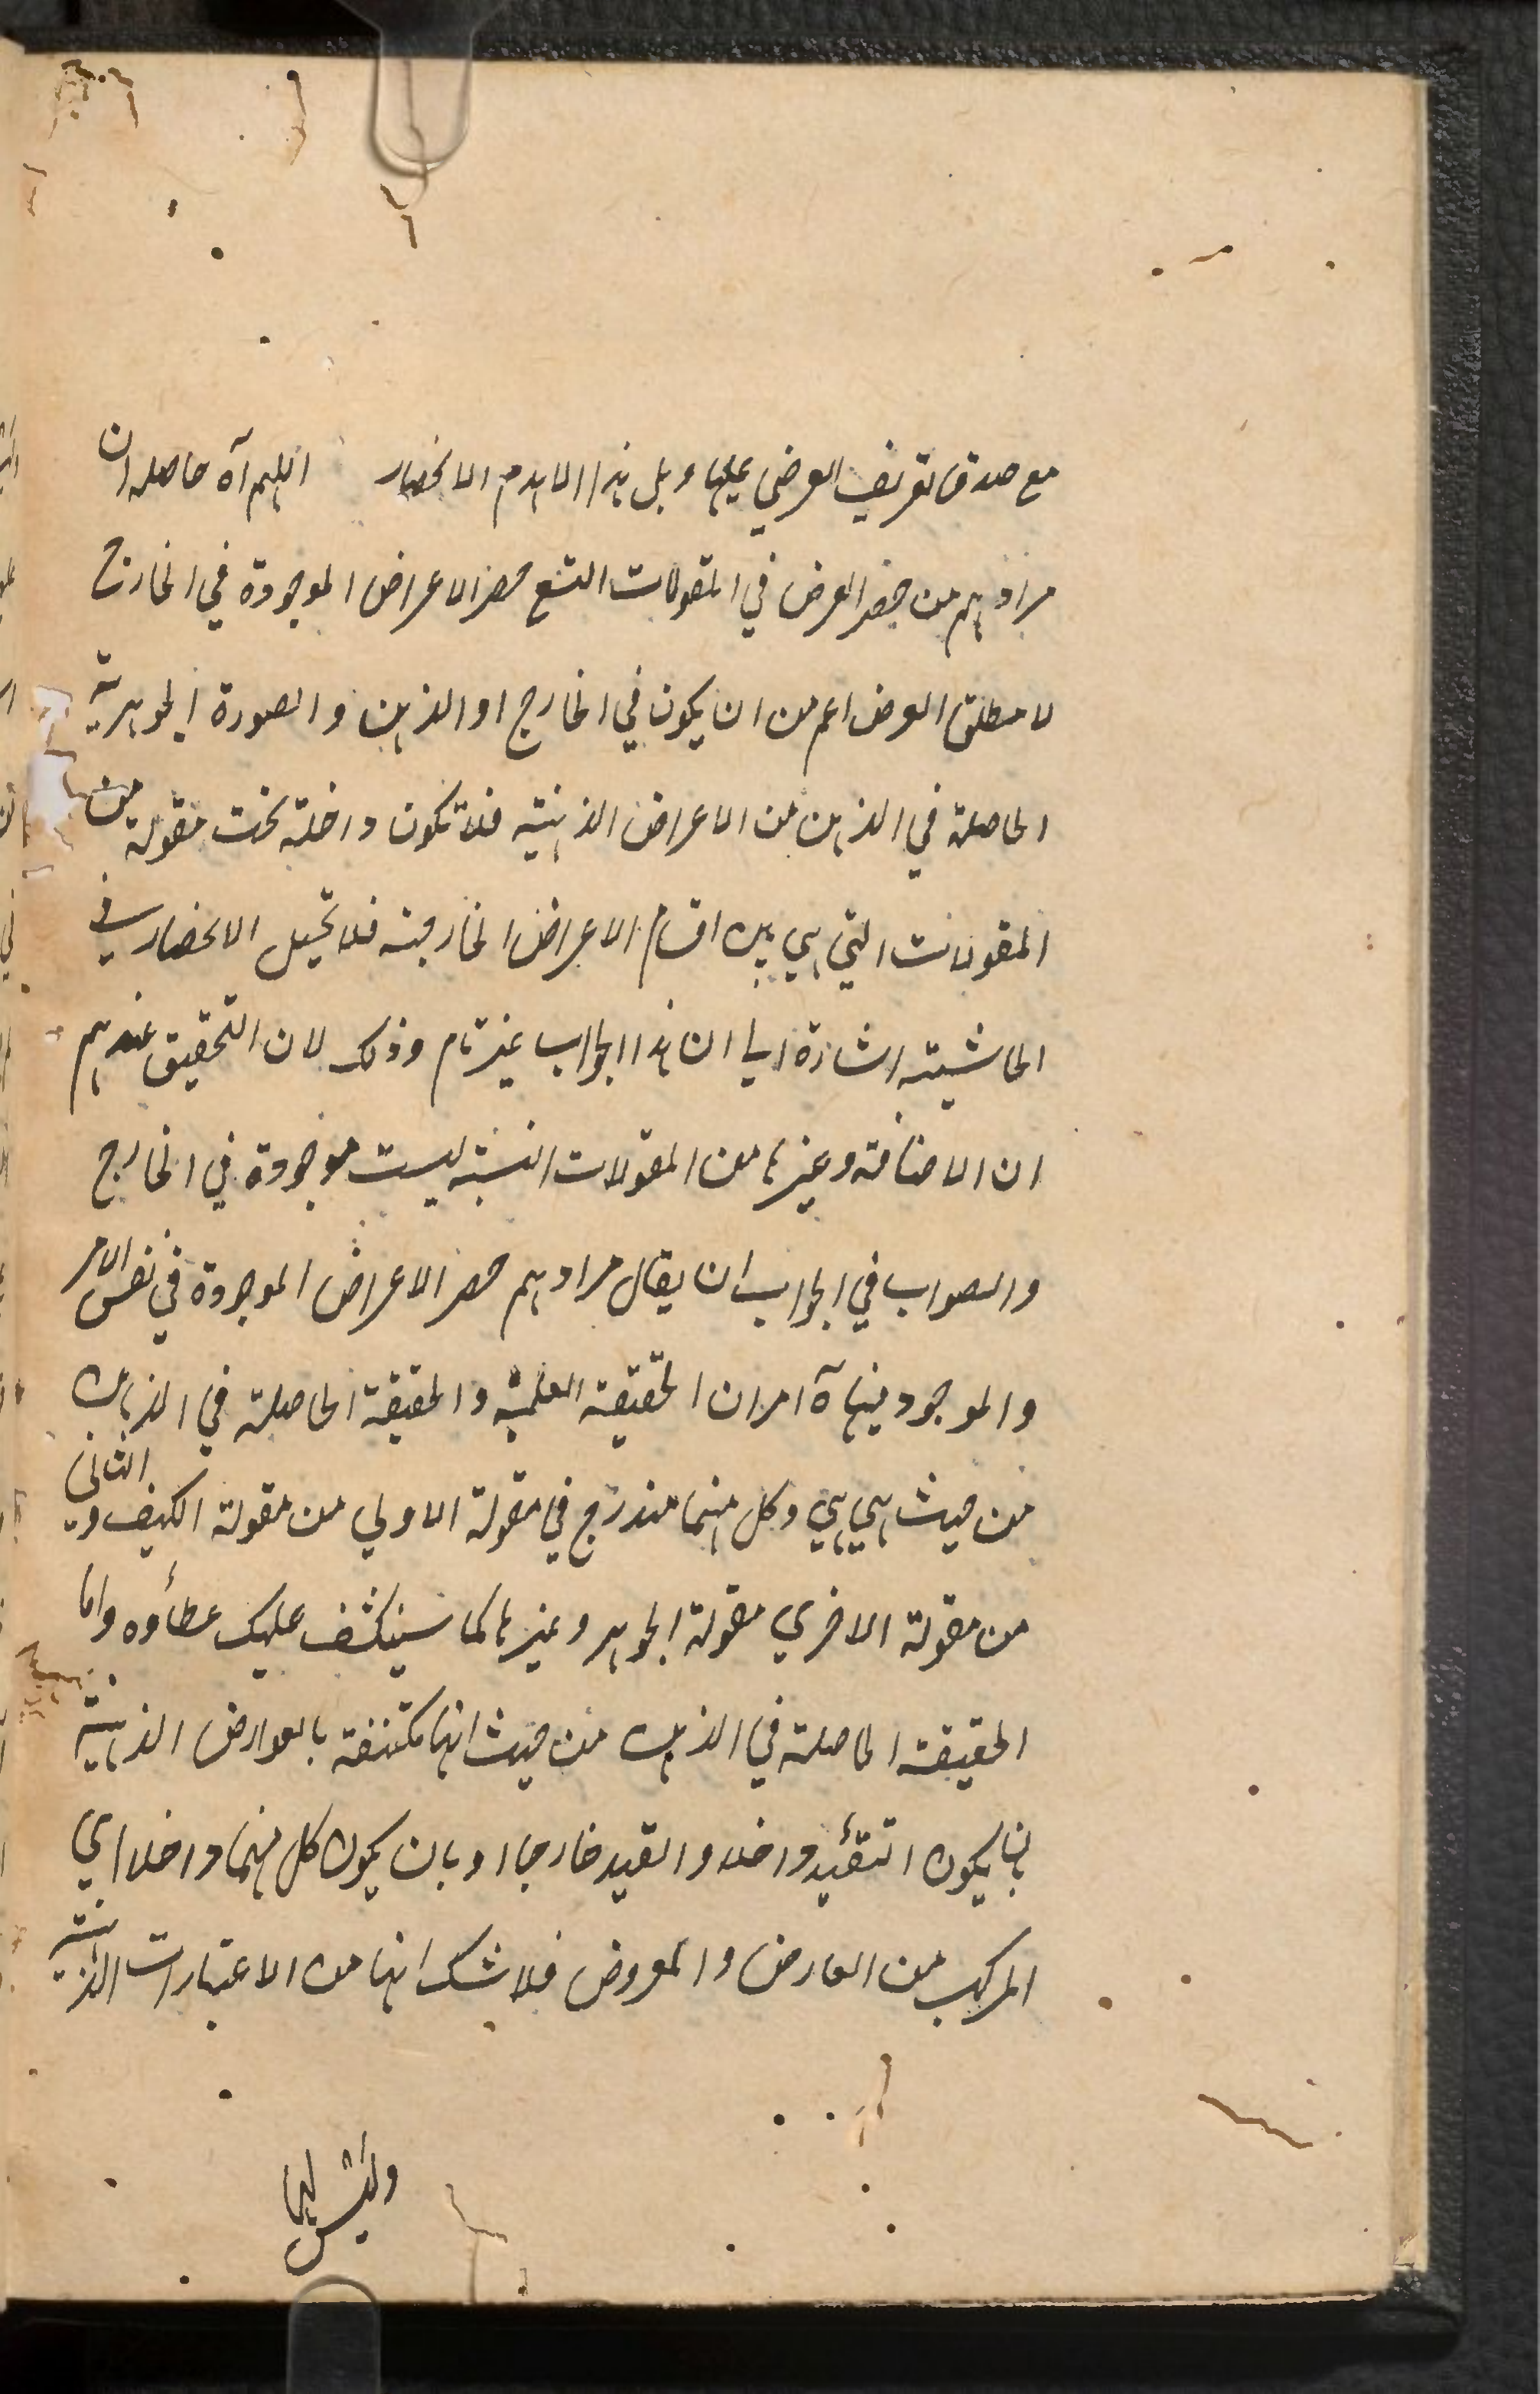 مع صدق تعريف العرضي عليها وبل هذا الا هدم الانحصار اللهم آه حاصله ان
مرادهم من حصر العرض في المقولات التسع حصر الاعراض الموجودة في الخارج
لا مطلق العرض اعم من ان يكون في الخارج او الذهن والصورة الجوهرية
الحاصلة في الذهن من الاعراض الذهنية فلا تكون داخلة تحت مقولة من
المقولات التي هي بين اقسام الاعراض الخارجية فلا تخيل الانحصار في
الحاشية اشارة الي ان هذا الجواب غير تام وذلك لان التحقيق عندهم
ان الاضافة وغيرها من المقولات النسبية ليست موجودة في الخارج
والصواب في الجواب ان يقال مرادهم حصر الاعراض الموجودة في نفس الامر
والموجود فيها آه امران الحقيقة العلمية والحقيقة الحاصلة في الذهن
من حيث هي هي وكل منهما مندرج في مقولة الاولي من مقولة الكيف والثاني
من مقولة الاخري مقولة الجوهر وغيرها كما سينكشف عليك غطاؤه واما
الحقيقة الحاصلة في الذهن من حيث انها مكتنفة بالعوارض الذهنية
بان يكون التقئيد داخلا والقيد خارجا او بان يكون كل منهما داخلا اي
المركب من العارض والمعروض فلا شك انها من الاعتبارات الذهنية
وليس لها